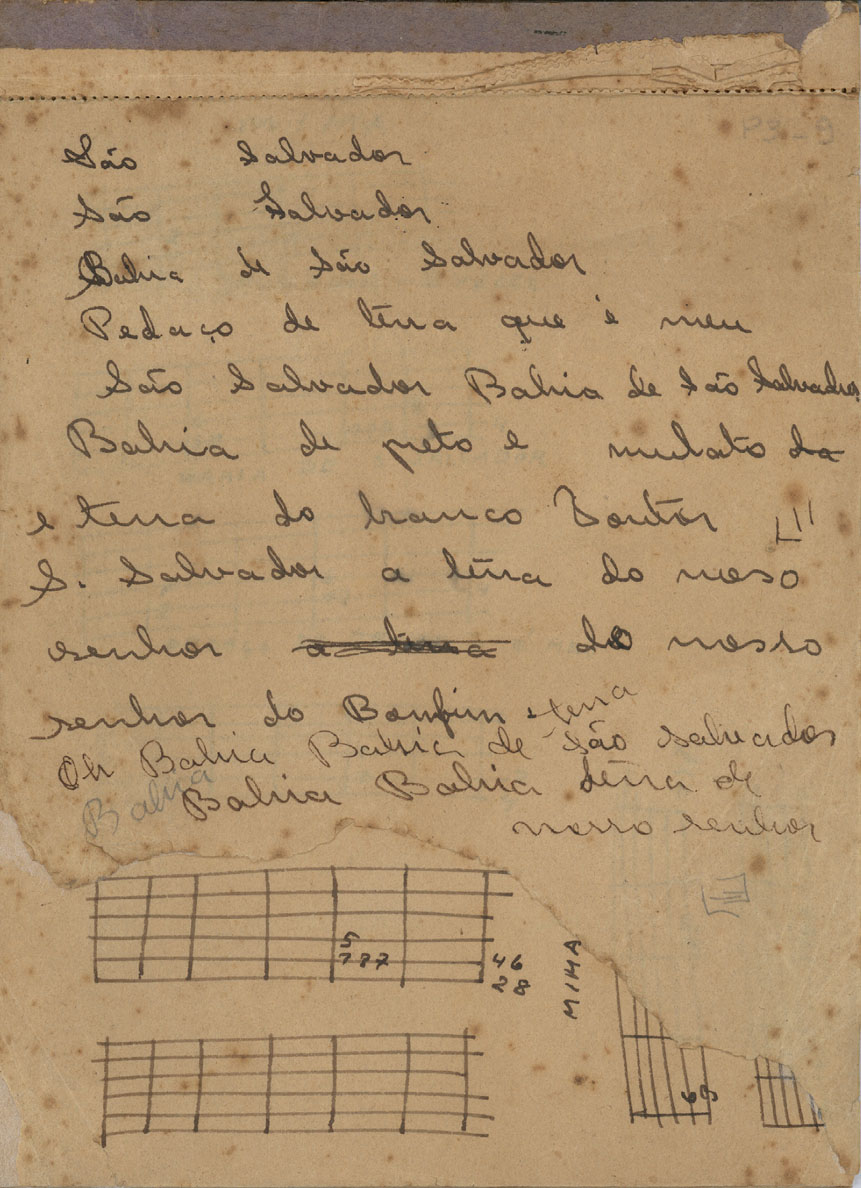 São Salvador
São Salvador
Bahia de São Salvador
Pedaço de têrra que é meu
São Salvador Bahia de São Salvador
Bahia de preto e mulato da
e terra do branco Doutôr
S. Salvador a têrra do noso
senhor a terra do nosso
senhor do Bonfim e terra
Oh Bahia Bahia de São Salvador
Bahia Bahia Bahia têrra de
nosso senhor
5
787
46
28
MIMA
68